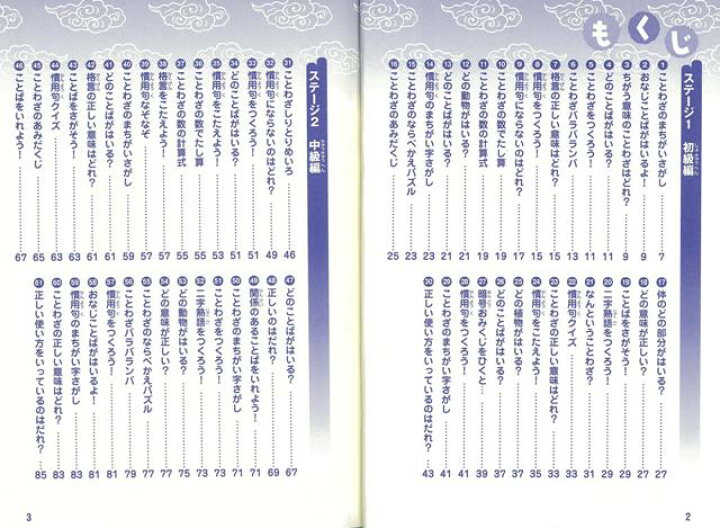 もくじ
ステージ1 初級編
❶ことわざのまちがいさがし……7
❷おなじことばがはいるよ!……9
❸ちがう意味のことわざはどれ?……9
❹どのことばがはいる?……11
❺ことわざをつくろう!……11
❻ことわざバラバランバ……13
❼格言の正しい意味はどれ?……15
❽慣用句をつくろう!……15
❾慣用句にならないのはどれ?……17
❿ことわざの数でたし算……19
⓫ことわざの数の計算式……19
⓬どの動物がはいる?……21
⓭どのことばがはいる?……21
⓮慣用句のまちがい字さがし……23
⓯ことわざのならべかえパズル……23
⓰ことわざのあみだくじ……25
⓱体のどの部分がはいる?……27
⓲どの意味が正しい?……27
⓳ことばをさがそう!……29
⓴二字熟語をつくろう!……29
㉑なんということわざ?……31
㉒慣用句クイズ……33
㉓ことわざの正しい意味はどれ?……33
㉔慣用句をこたえよう!……35
㉕どの植物がはいる?……37
㉖どのことばがはいる?……37
㉗暗号おみくじをひくと………39
㉘慣用句をつくろう!……41
㉙ことわざのまちがい字さがし……41
㉚正しい使い方をいっているのはだれ?……43
2
ステージ2 中級編
㉛ことわざしりとりめいろ……46
㉜慣用句にならないのはどれ?……49
㉝慣用句をつくろう!……51
㉞どのことばがはいる?……51
㉟慣用句をこたえよう!……53
㊱ことわざの数でたし算……55
㊲ことわざの数の計算式……55
㊳格言をこたえよう!……57
㊴慣用句なぞなぞ……57
㊵ことわざのまちがいさがし……59
㊶どのことばがはいる?……61
㊷格言の正しい意味はどれ?……61
㊸ことばをさがそう!……63
㊹慣用句クイズ……63
㊺ことわざのあみだくじ……65
㊻ことばをいれよう!……67
㊼どのことばがはいる?……67
㊽正しいのはどれ?……69
㊾関係のあることばをいれよう!……71
㊿ことわざのまちがい字さがし……71
51 ことわざをつくろう!……73
52 二字熟語をつくろう!……73
53 どの動物がはいる?……75
54 どの意味が正しい?……77
55 ことわざのならべかえパズル……77
56 ことわざバラバランバ……79
57 慣用句をつくろう!……81
58 おなじことばがはいるよ!……81
59 慣用句のまちがい字さがし……83
60 ことわざの正しい意味はどれ?……83
61 正しい使い方をいっているのはだれ?……85
3